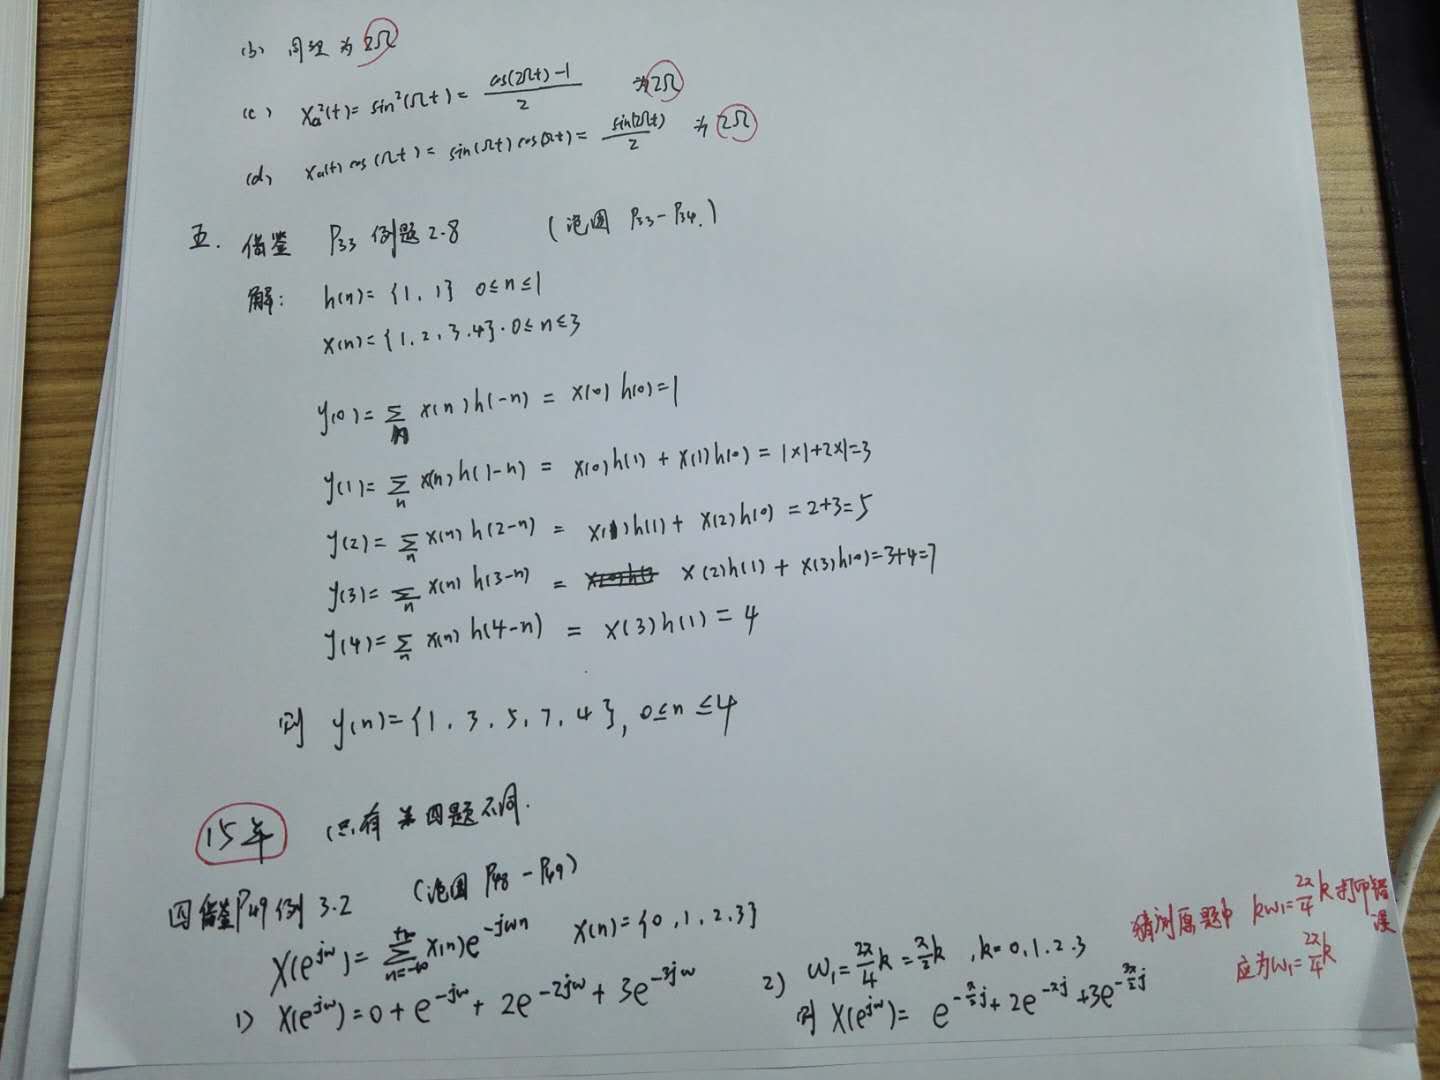 (b) 同理 为 2Ω
(c) Xa²(t)= sin²(Ωt)= (cos(2Ωt)-1)/2 为2Ω
(d) Xa(t) cos(Ωt)= sin(Ωt) cos(Ωt)= sin(2Ωt)/2 为2Ω
五. 借鉴 P33 例题2.8 (范围 P33-P34.)
解: h(n)= {1, 1} 0≤n≤1
x(n)= {1, 2, 3, 4}. 0≤n≤3
y(0)= Σn x(n)h(-n) = x(0) h(0)=1
y(1)= Σn x(n)h(1-n) = x(0)h(1) + x(1)h(0) = 1×1+2×1=3
y(2)= Σn x(n)h(2-n) = x(1)h(1)+ x(2)h(0) = 2+3=5
y(3)= Σn x(n) h(3-n) = x(2)h(1)+ x(3)h(0)=3+4=7
y(4)= Σn x(n) h(4-n) = x(3)h(1) = 4
则 y(n)= {1, 3, 5, 7, 4}, 0≤n≤4
15年 (只有 第四题不同.
四 借鉴P49例 3.2 (范围 P48-P49)
X(e^jw)= Σ(n=-∞ → +∞) x(n)e^-jwn x(n)={0, 1, 2, 3}
1) X(e^jw)=0+ e^-jw + 2e^-2jw + 3e^-3jw
2) w₁=2π/4 k=π/2 k, k=0, 1, 2, 3
则 X(e^jw)= e^-π/2 j + 2e^-πj +3e^-3π/2 j
猜测原题中 kw₁=2π/4 k打印错误
应为w₁=2π/4 k